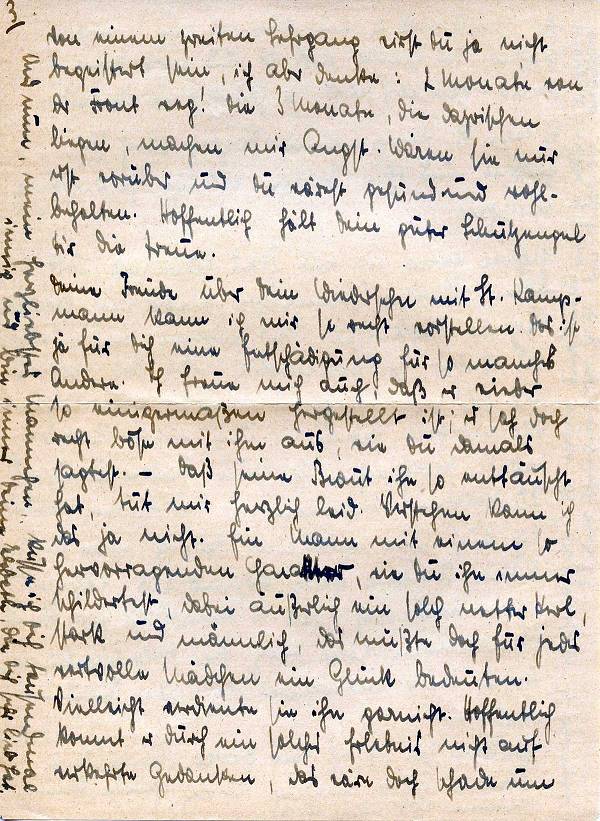 3)
von einem zweiten Lehrgang wirst du ja nicht
begeistert sein, ich aber denke: 2 Monate von
der Front weg! Die 3 Monate, die dazwischen
liegen, machen mir Angst. Wären sie nur
erst vorüber und du wärest gesund und wohl-
behalten. Hoffentlich hält dein guter Schutzengel
dir die Treue.
Deine Freude über dein Wiedersehn mit Lt. Kamp-
mann kann ich mir so recht vorstellen. Das ist
ja für dich eine Entschädigung für so manches
Andere. Ich freue mich auch, daß er wieder
so einigermaßen hergestellt ist; es sah doch
recht böse mit ihm aus, wie du damals
sagtest. – Daß seine Braut ihn so enttäuscht
hat, tut mir herzlich leid. Verstehen kann ich
das ja nicht. Ein Mann mit einem so
hervorragenden Charakter, wie du ihn immer
schildertest, dabei äußerlich ein solch netter Kerl,
stark und männlich, das müßte doch für jedes
wertvolle Mädchen ein Glück bedeuten.
Vielleicht verdiente sie ihn garnicht. Hoffentlich
kommt er durch ein solches Erlebnis nicht auf
verkehrte Gedanken, das wäre doch schade um
Und nun, mein herzliebstes Männchen, küsse ich dich tausendmal
innig und bin immer deine